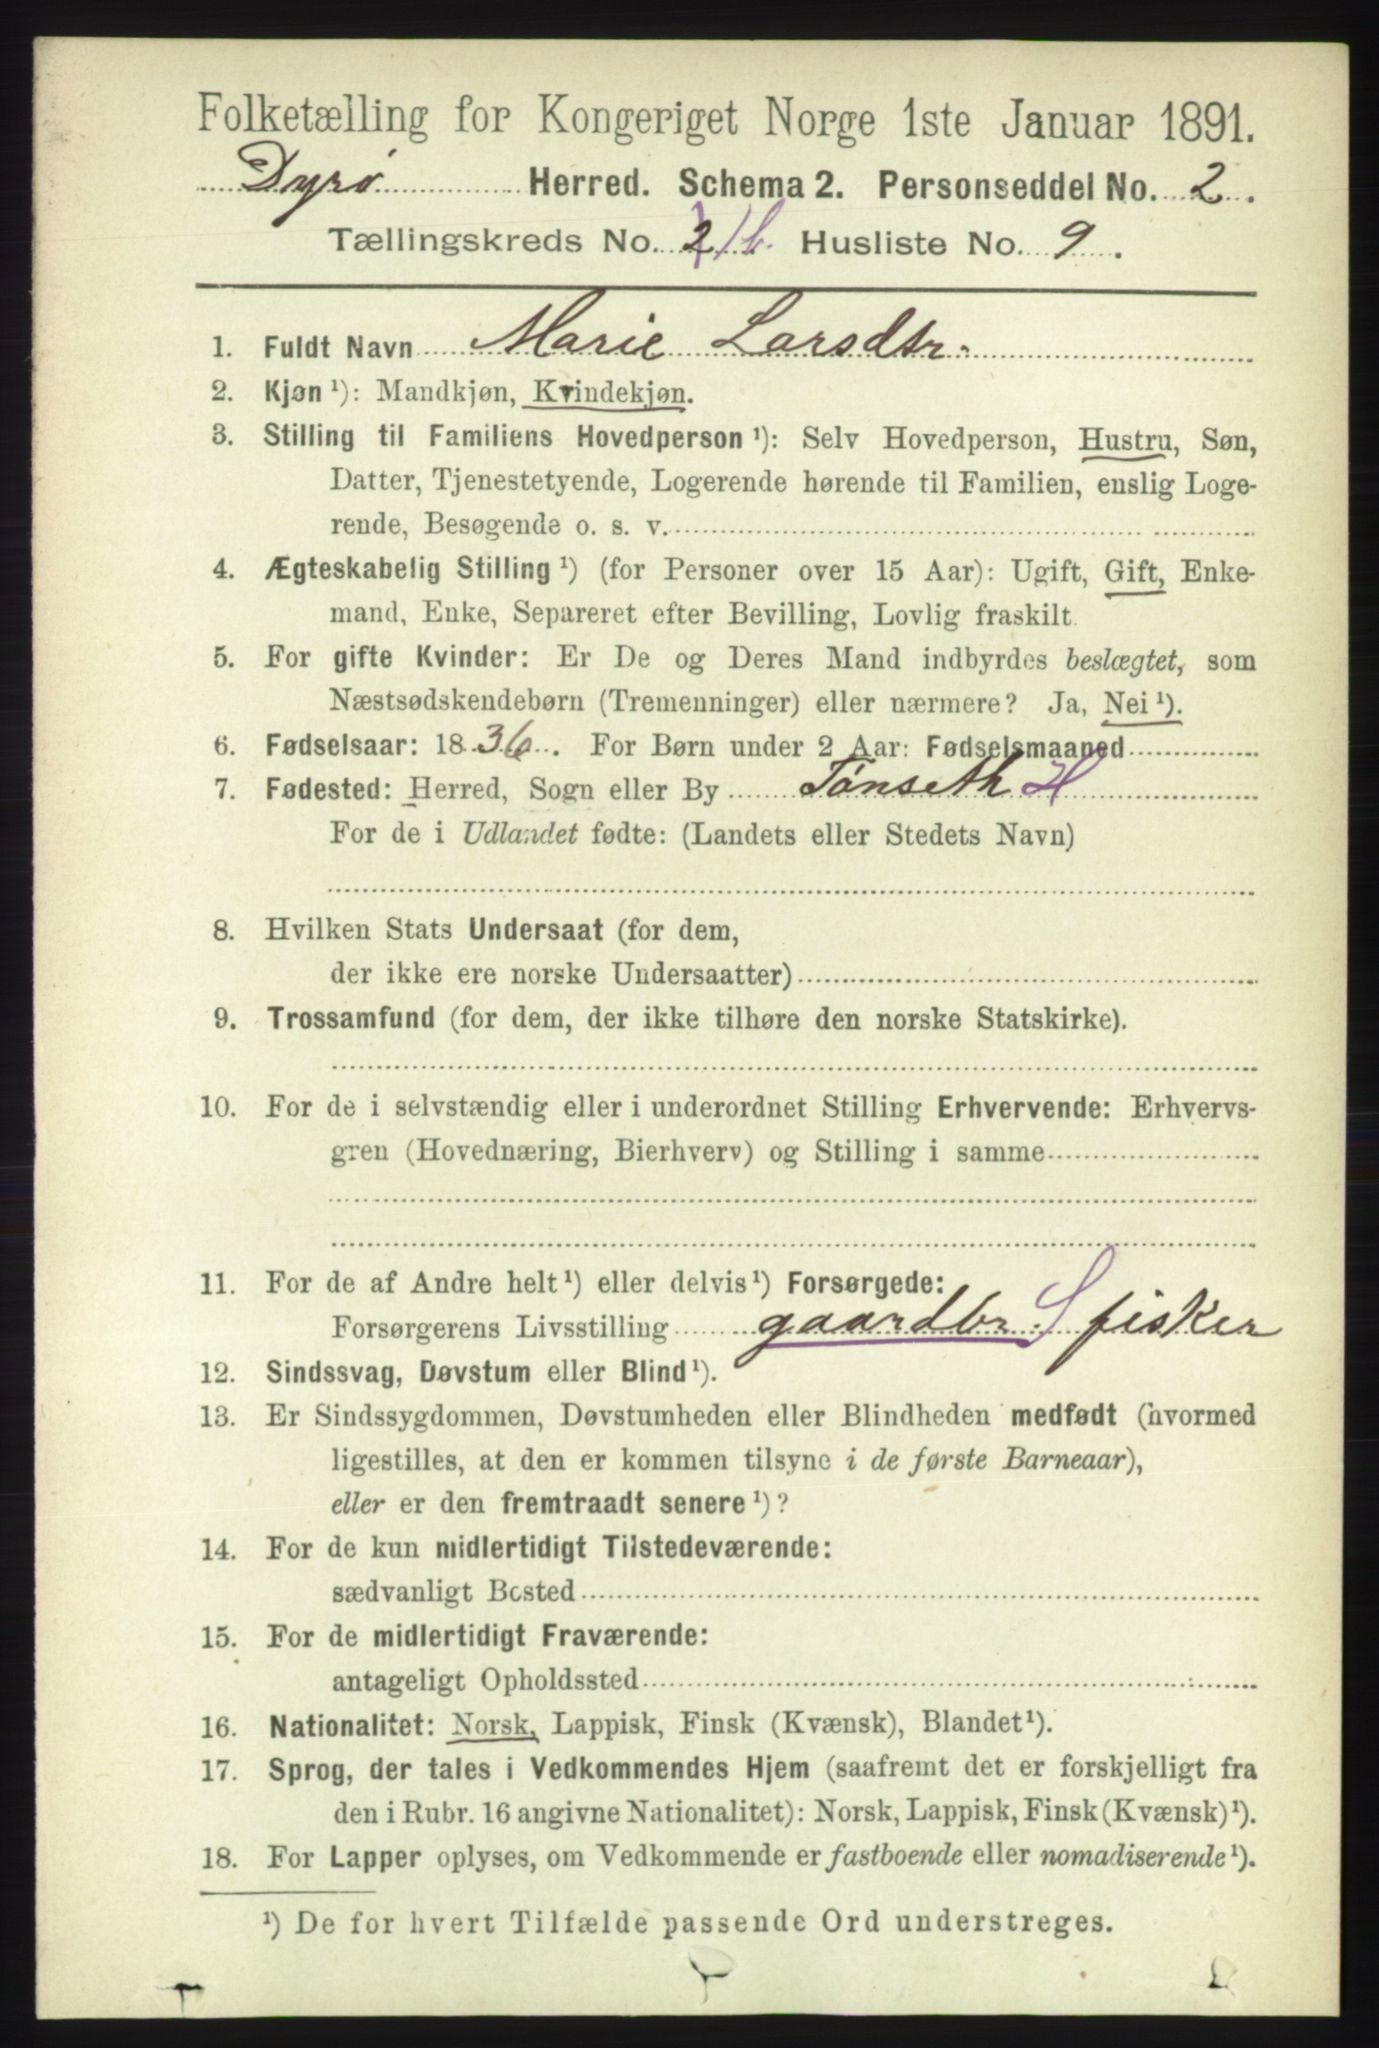 Folketælling for Kongeriget Norge 1ste Januar 1891.
Dyrø Herred. Schema 2. Personseddel No. 2.
Tællingskreds No. 2 1b. Husliste No. 9.
1. Fuldt Navn Marie Larsdtr.
2. Kjøn ¹): Mandkjøn, Kvindekjøn.
3. Stilling til Familiens Hovedperson ¹): Selv Hovedperson, Hustru, Søn,
Datter, Tjenestetyende, Logerende hørende til Familien, enslig Loge-
rende, Besøgende o. s. v.
4. Ægteskabelig Stilling ¹) (for Personer over 15 Aar): Ugift, Gift, Enke-
mand, Enke, Separeret efter Bevilling, Lovlig fraskilt.
5. For gifte Kvinder: Er De og Deres Mand indbyrdes beslægtet, som
Næstsødskendebørn (Tremenninger) eller nærmere? Ja, Nei ¹).
6. Fødselsaar: 1836. For Børn under 2 Aar: Fødselsmaaned
7. Fødested: Herred, Sogn eller By Tønseth H
For de i Udlandet fødte: (Landets eller Stedets Navn)
8. Hvilken Stats Undersaat (for dem,
der ikke ere norske Undersaatter)
9. Trossamfund (for dem, der ikke tilhøre den norske Statskirke).
10. For de i selvstændig eller i underordnet Stilling Erhvervende: Erhvervs-
gren (Hovednæring, Bierhverv) og Stilling i samme
11. For de af Andre helt ¹) eller delvis ¹) Forsørgede:
Forsørgerens Livsstilling gaardbr. S fisker
12. Sindssvag, Døvstum eller Blind ¹).
13. Er Sindssygdommen, Døvstumheden eller Blindheden medfødt (hvormed
ligestilles, at den er kommen tilsyne i de første Barneaar),
eller er den fremtraadt senere ¹)?
14. For de kun midlertidigt Tilstedeværende:
sædvanligt Bosted
15. For de midlertidigt Fraværende:
antageligt Opholdssted
16. Nationalitet: Norsk, Lappisk, Finsk (Kvænsk), Blandet ¹).
17. Sprog, der tales i Vedkommendes Hjem (saafremt det er forskjelligt fra
den i Rubr. 16 angivne Nationalitet): Norsk, Lappisk, Finsk (Kvænsk) ¹).
18. For Lapper oplyses, om Vedkommende er fastboende eller nomadiserende ¹).
¹) De for hvert Tilfælde passende Ord understreges.